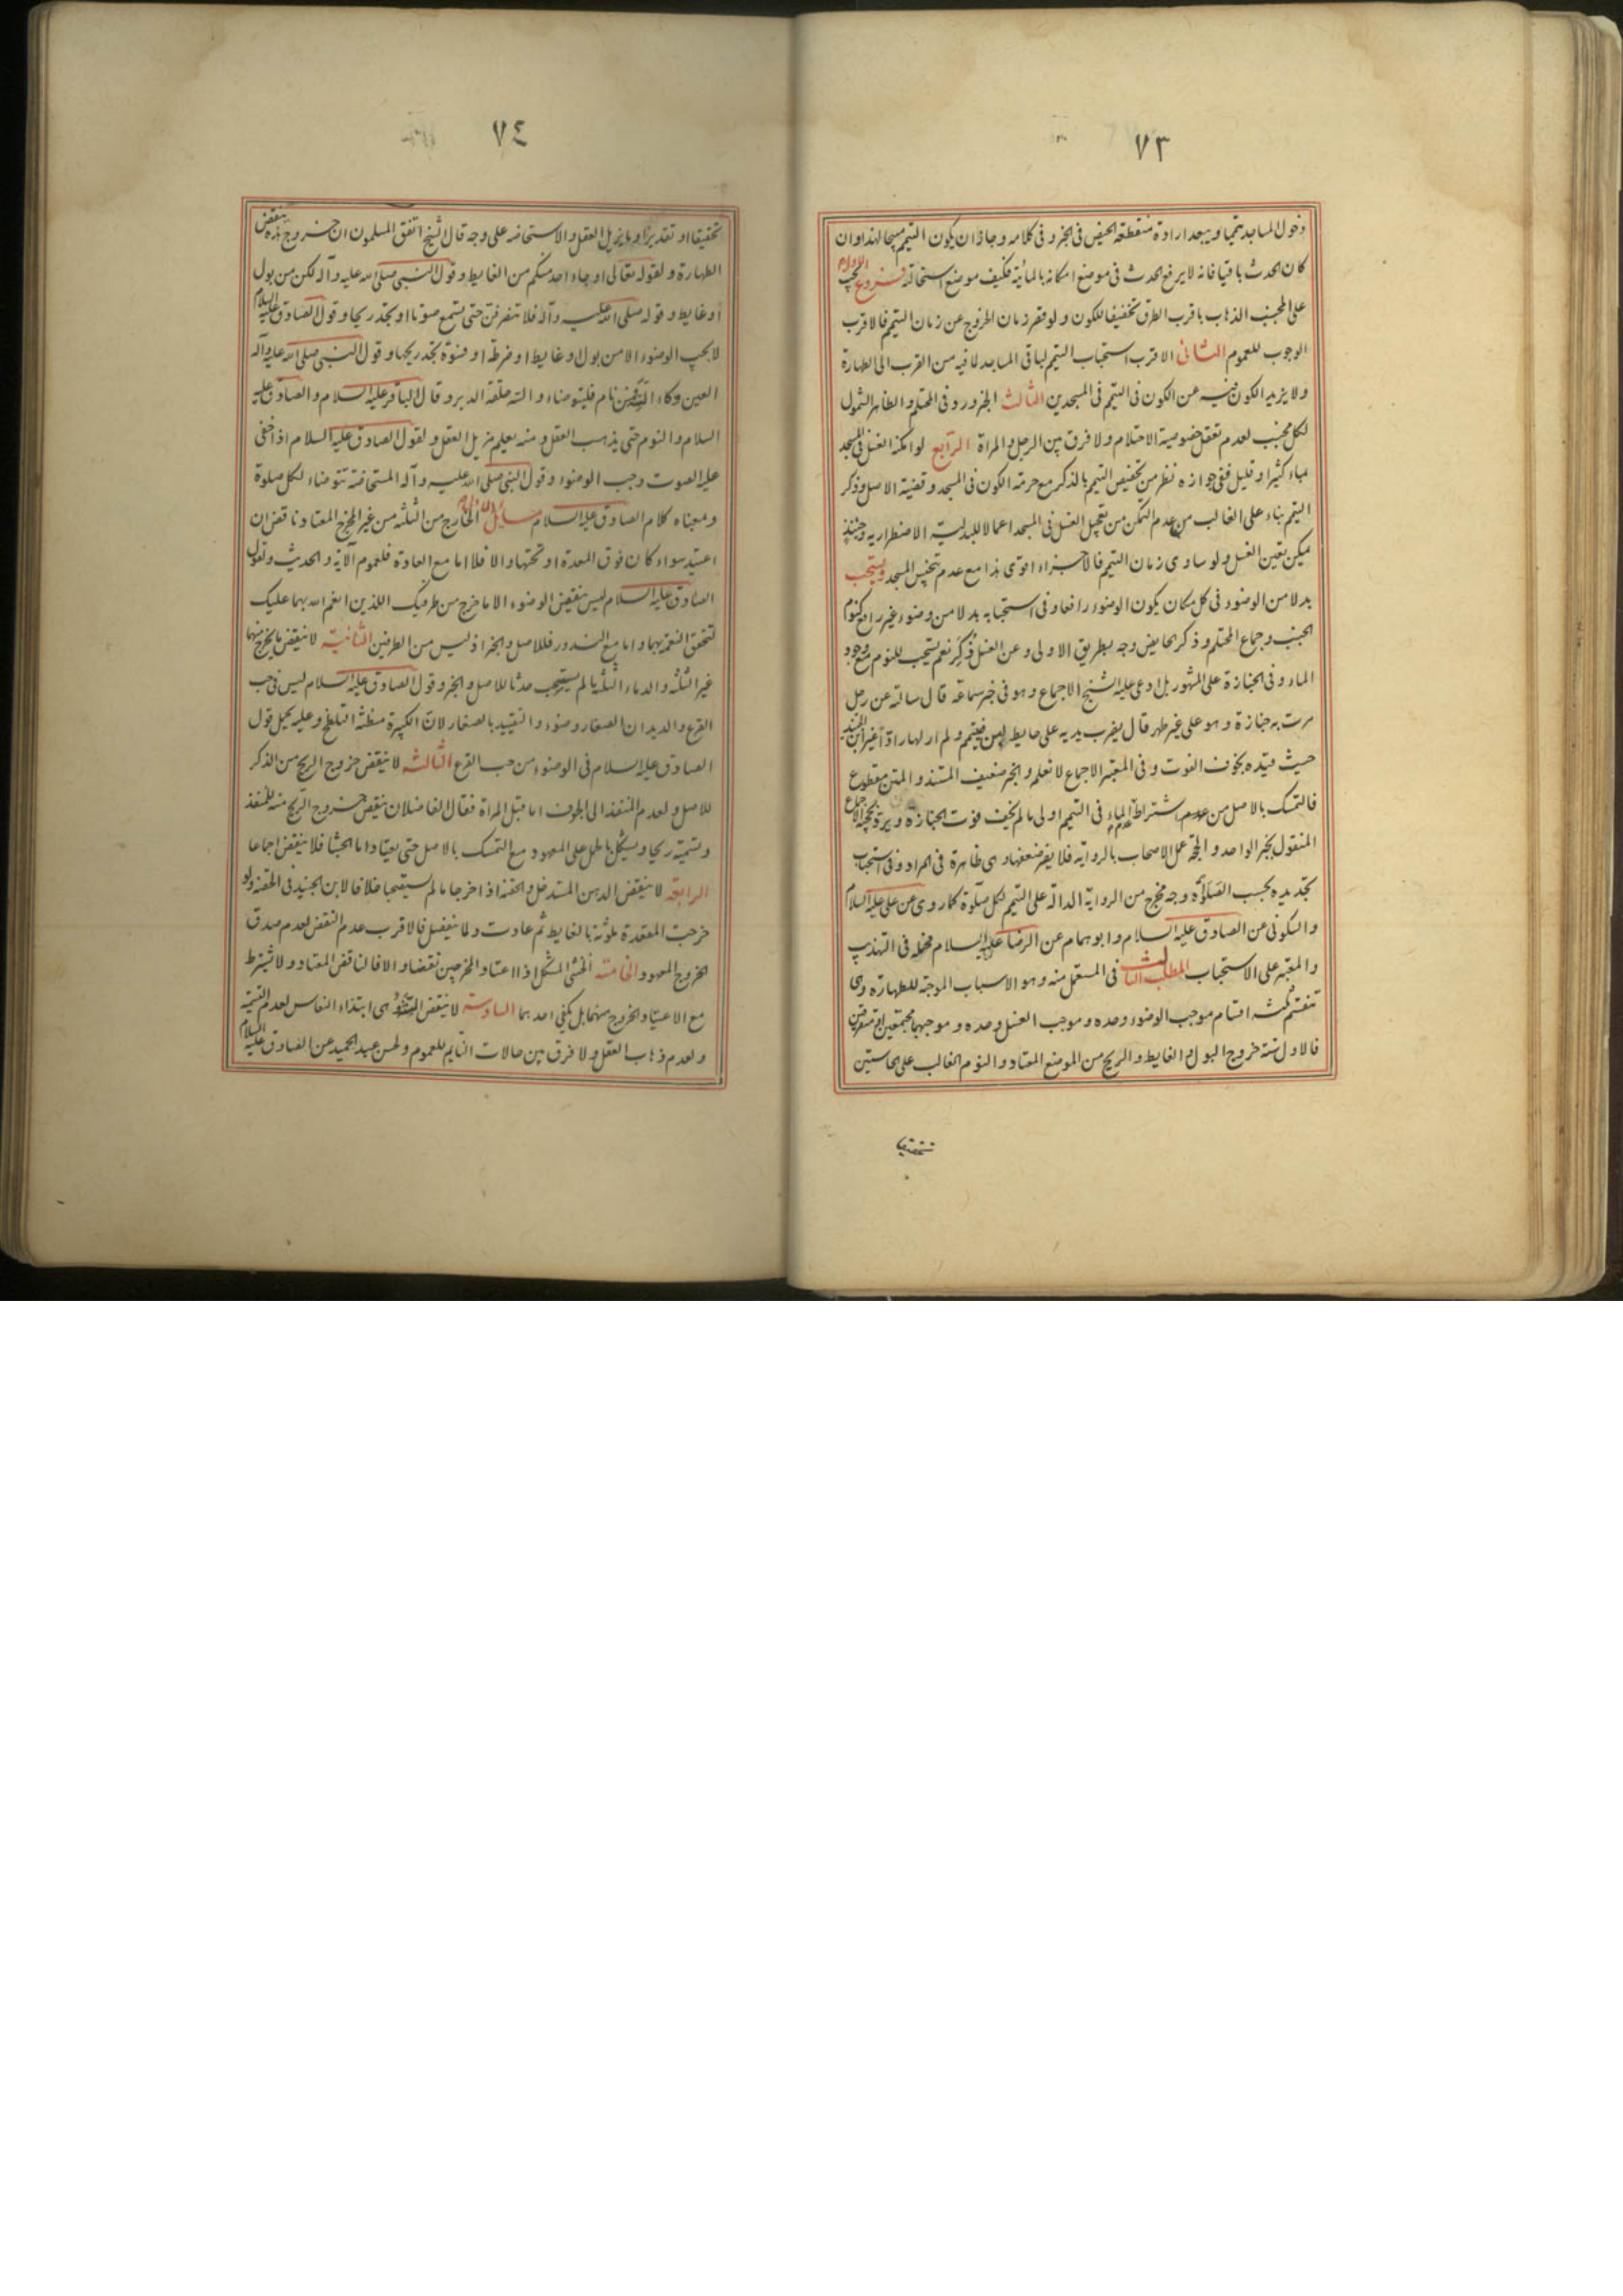 ٧٣
دخول المساجد تيمما ويبعد ارادة منقطعة الحيض فى الخبر وفى كلامه وجاز ان يكون التيمم مبيحا لهذا وان
كان الحدث باقيا فانه لا يرفع الحدث فى موضع امكانه بالمائية فكيف موضع استحالته فروع الاول يجب
على المجنب الذهاب باقرب الطرق تخفيفا للكون ولو قصر زمان الخروج عن زمان التيمم فالاقرب
الوجوب للعموم الثانى الاقرب استحباب التيمم لباقى المساجد لما فيه من القرب الى الطهارة
ولا يزيد الكون فيه عن الكون فى التيمم فى المسجدين الثالث الخبر ورد فى المحتلم والظاهر الشمول
لكل مجنب لعدم تعقل خصوصية الاحتلام ولا فرق بين الرجل والمراة الرابع لو امكنه الغسل فى المسجد
بماء كثير او قليل ففى جوازه نظر من تخصيص التيمم بالذكر مع حرمة الكون فى المسجد وقضية الاصل وذكر
التيمم بناء على الغالب من عدم التمكن من تعجيل الغسل فى المسجد اعمالا للبدلية الاضطرارية وحينئذ
يمكن تعين الغسل ولو ساوى زمان التيمم فالاجزاء اقوى هذا مع عدم تنجيس المسجد ويستحب
بدلا من الوضوء فى كل مكان يكون الوضوء رافعا وفى استحبابه بدلا من وضوء غير رافع كنوم
الجنب وجماع المحتلم وذكر الحايض وجه بطريق الاولى وعن الغسل ذكر نعم يستحب للنوم مع وجود
الماء وفى الجنازة على المشهور بل ادعى عليه الشيخ الاجماع وهو فى خبر سماعة قال سالته عن رجل
مرت به جنازة وهو على غير طهر قال يضرب يديه على حايط لبن فيتيمم ولم ار لها رادا غير ابن الجنيد
حيث قيده بخوف الفوت وفى المعتبر الاجماع لا نعلمه والخبر ضعيف المسند والمتن مقطوع
فالتمسك بالاصل من اشتراط عدم الماء فى التيمم اولى ما لم يخف فوت الجنازة ويرد بحجية الاجماع
المنقول بخبر الواحد والحجة عمل الاصحاب بالرواية فلا يضر ضعفها وهى ظاهرة فى المراد وفى استحباب
تجديده بحسب الصلوة وجه مخرج من الرواية الدالة على التيمم لكل صلوة كما روى عن على عليه السلام
والسكونى عن الصادق عليه السلام وابو همام عن الرضا عليه السلام محمله فى التهذيب
والمعتبر على الاستحباب المطلب الثالث فى المستعمل منه وهو الاسباب الموجبة للطهارة وهى
تنقسم ثلثة اقسام موجب الوضوء وحده وموجب الغسل وحده وموجبهما مجتمعين او متفرقين
فالاول ستة خروج البول والغايط والريح من الموضع المعتاد والنوم الغالب على الحاستين
تحقيقا
٧٤
تحقيقا او تقديرا وما يزيل العقل والاستحاضه على وجه قال الشيخ اتفق المسلمون ان خروج هذه ينقض
الطهارة ولقوله تعالى او جاء احد منكم من الغايط وقول النبى صلى الله عليه وآله لكن من بول
او غايط وقوله صلى الله عليه وآله فلا تنصرفن حتى تسمع صوتا او تجد ريحا وقول الصادق عليه السلام
لا يجب الوضوء الا من بول او غايط او ضرطة او فسوة تجد ريحها وقول النبى صلى الله عليه وآله
العين وكاء السه فمن نام فليتوضاء والسه حلقة الدبر وقال الباقر عليه السلام والصادق عليه
السلام والنوم حتى يذهب العقل ومنه يعلم مزيل العقل ولقول الصادق عليه السلام اذا خفى
عليه الصوت وجب الوضوء وقول النبى صلى الله عليه وآله المستحاضة تتوضاء لكل صلوة
وبمعناه كلام الصادق عليه السلام مسايل الاولى الخارج من الثلثة من غير المخرج المعتاد ناقض ان
اعتيد سواء كان فوق المعدة او تحتها والا فلا اما مع العادة فلعموم الآية والحديث ولقول
الصادق عليه السلام ليس ينقض الوضوء الا ما خرج من طرفيك اللذين انعم الله بهما عليك
لتحقق النعمة بهما واما مع الندور فللاصل والخبر اذ ليس من الطرفين الثانية لا ينقض ما يخرج منهما
غير الثلثة والدماء الثلثة ما لم يستصحب حدثا للاصل والخبر وقول الصادق عليه السلام ليس فى حب
القرع والديدان الصغار وضوء والتقييد بالصغار لان الكبيرة مظنة التلطخ وعليه يحمل قول
الصادق عليه السلام فى الوضوء من حب القرع الثالثة لا ينقض خروج الريح من الذكر
للاصل ولعدم المنفذ الى الجوف اما قبل المراة فقال الفاضلان ينقض خروج الريح منه للمنفذ
وتسميته ريحا ويشكل بالحمل على المعهود مع التمسك بالاصل حتى يعتاد اما الجشا فلا ينقض اجماعا
الرابعة لا ينقض الدهن المستدخل والحقنة اذا خرجا ما لم يستصحبا خلافا لابن الجنيد فى الحقنة ولو
خرجت المقعدة ملوثة بالغايط ثم عادت ولما ينفصل فالاقرب عدم النقض لعدم صدق
الخروج المعهود الخامسة الخنثى المشكل اذا اعتاد المخرجين نقضا والا فالناقض المعتاد ولا يشترط
مع الاعتياد الخروج منهما بل يكفى احدهما السادسة لا ينقض وهى ابتداء النعاس لعدم التسمية
ولعدم ذهاب العقل ولا فرق بين حالات النايم للعموم ولحسن عبد الحميد عن الصادق عليه السلام